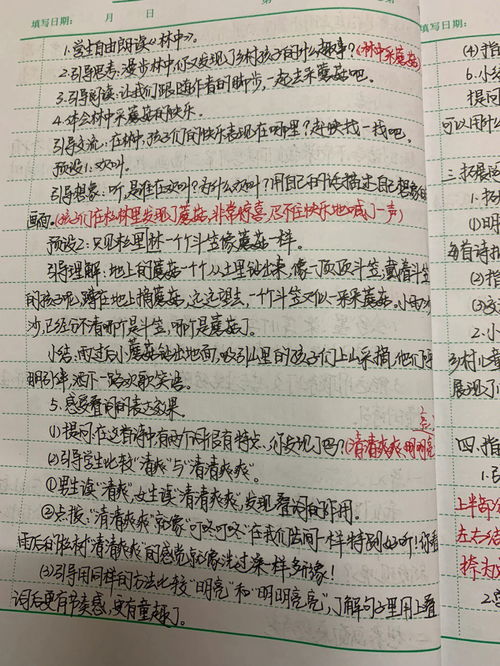 填写日期： 月 日
1.学生自由朗读《林中》。
2.引导思考:漫步林中,你又发现了乡村孩子的什么趣事?(林中采蘑菇)
3.引导朗读:让我们跟随作者的脚步,一起去采蘑菇吧。
4.体会林中采蘑菇的快乐。
引导交流:在林中,孩子们的快乐表现在哪里?赶快找一找吧。
预设1:欢叫。
引导想象:听,是谁在欢叫?为什么欢叫?用自己的话描述自己想象的
画面。(孩子们在松林里发现了蘑菇,非常惊喜,忍不住快乐地喊了一声)
预设2:只见松林里一个个斗笠像蘑菇一样。
引导理解:地上的蘑菇一个个从土里钻出来,像一顶顶斗笠,戴着斗笠
的孩子呢,蹲在地上摘蘑菇,远远望去,一个个斗笠又似一朵朵蘑菇。小雨沙
沙,已经分不清哪个是斗笠,哪个是蘑菇了。
小结:雨过后,小蘑菇钻出地面,吸引山里的孩子们上山采摘,他们呼
朋引伴,洒下一路欢歌笑语。
5.感受叠词的表达效果。
(1)提问:在这首诗中有两个词很有特点,你发现了吗?(清清爽爽 明明亮
(2)引导学生比较"清爽"与"清清爽爽"。
①男生读"清爽",女生读"清清爽爽",发现叠词的作用。
②点拨:"清清爽爽"就像"叮叮咚咚"在我们唇间一样特别好听!你看
雨后的松林"清清爽爽"的感觉就像洗过澡一样多形象!
(3)引导用同样的方法比较"明亮"和"明明亮亮",了解句子里用上叠
词后更有节奏感,更有童趣了。
填写日期：
(4)指
6.小结
提问
可以用什么
三.拓展
1.拓
①明
每首诗
(2)指
(3)
2.
乡村儿童
展现了
四.指
1.
上半部分
左右结
2.